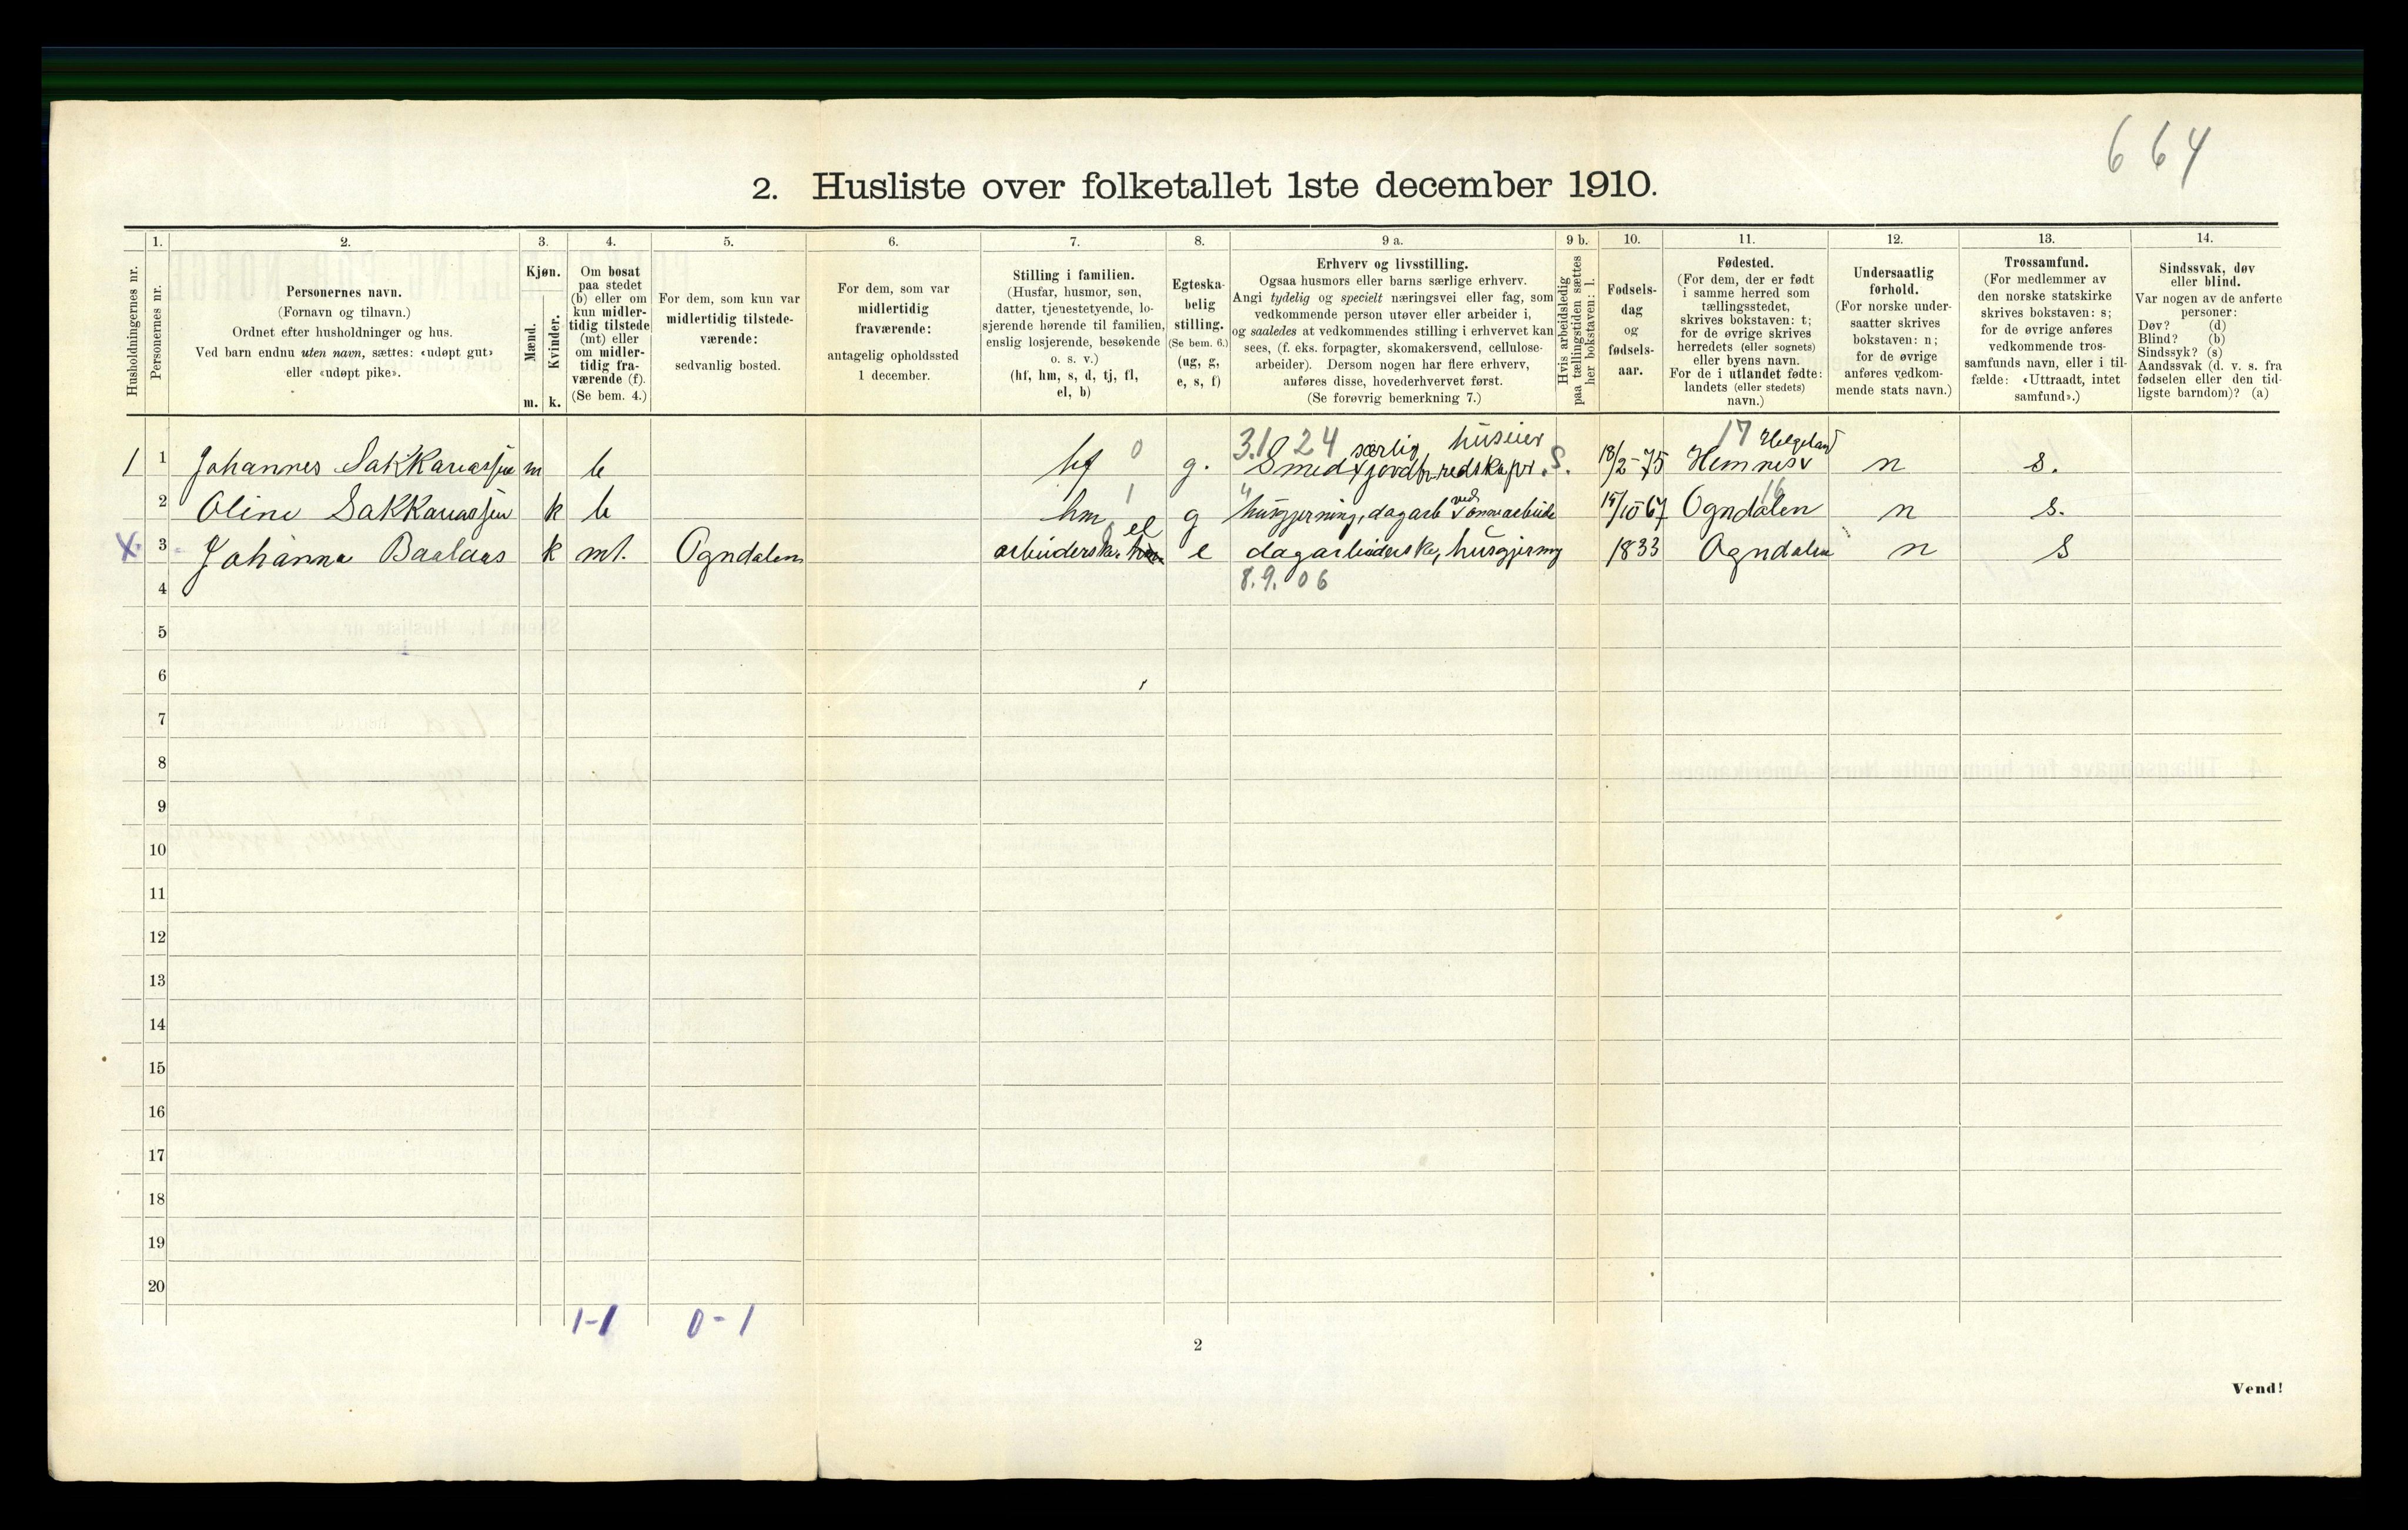 664
2. Husliste over folketallet 1ste december 1910.
Husholdningernes nr.
1.
Personernes nr.
2.
Personernes navn.
(Fornavn og tilnavn.)
Ordnet efter husholdninger og hus.
Ved barn endnu uten navn, sættes: «udøpt gut»
eller «udøpt pike».
3.
Kjøn.
Mænd.
Kvinder.
m. k.
4.
Om bosat
paa stedet
(b) eller om
kun midler-
tidig tilstede
(mt) eller
om midler-
tidig fra-
værende (f).
(Se bem. 4.)
5.
For dem, som kun var
midlertidig tilstede-
værende:
sedvanlig bosted.
6.
For dem, som var
midlertidig
fraværende:
antagelig opholdssted
1 december.
7.
Stilling i familien.
(Husfar, husmor, søn,
datter, tjenestetyende, lo-
sjerende hørende til familien,
enslig losjerende, besøkende
o. s. v.)
(hf, hm, s, d, tj, fl,
el, b)
8.
Egteska-
belig
stilling.
(Se bem. 6.)
(ug, g,
e, s, f)
9 a.
Erhverv og livsstilling.
Ogsaa husmors eller barns særlige erhverv.
Angi tydelig og specielt næringsvei eller fag, som
vedkommende person utøver eller arbeider i,
og saaledes at vedkommendes stilling i erhvervet kan
sees, (f. eks. forpagter, skomakersvend, cellulose-
arbeider). Dersom nogen har flere erhverv,
anføres disse, hovederhvervet først.
(Se forøvrig bemerkning 7.)
9 b.
Hvis arbeidsledig
paa tællingstiden sættes
her bokstaven: l.
10.
Fødsels-
dag
og
fødsels-
aar.
11.
Fødested.
(For dem, der er født
i samme herred som
tællingsstedet,
skrives bokstaven: t;
for de øvrige skrives
herredets (eller sognets)
eller byens navn.
For de i utlandet fødte:
landets (eller stedets)
navn.)
12.
Undersaatlig
forhold.
(For norske under-
saatter skrives
bokstaven: n;
for de øvrige
anføres vedkom-
mende stats navn.)
13.
Trossamfund.
(For medlemmer av
den norske statskirke
skrives bokstaven: s;
for de øvrige anføres
vedkommende tros-
samfunds navn, eller i til-
fælde: «Uttraadt, intet
samfund».)
14.
Sindssvak, døv
eller blind.
Var nogen av de anførte
personer:
Døv? (d)
Blind? (b)
Sindssyk? (s)
Aandssvak (d. v. s. fra
fødselen eller den tid-
ligste barndom)? (a)
3.1 24 særlig huseier 17 Helgeland
1 1 Johannes Sakkariassen m b hf 0 g. Smed jordbr.redskapr. S. 18/2-75 Hemnes n s.
2 Oline Sakkariassen k b hm 1 g husgjerning, dagarb ved onnearbeide 15/10-67 Ogndalen 16 n s.
X 3 Johanna Baalaas k mt. Ogndalen arbeiderske el e dagarbeiderske, husgjerning 1833 Ogndalen n s
4 8.9.06
5
6
7
8
9
10
11
12
13
14
15
16
17
18
19
20
1-1 0-1
2
Vend!